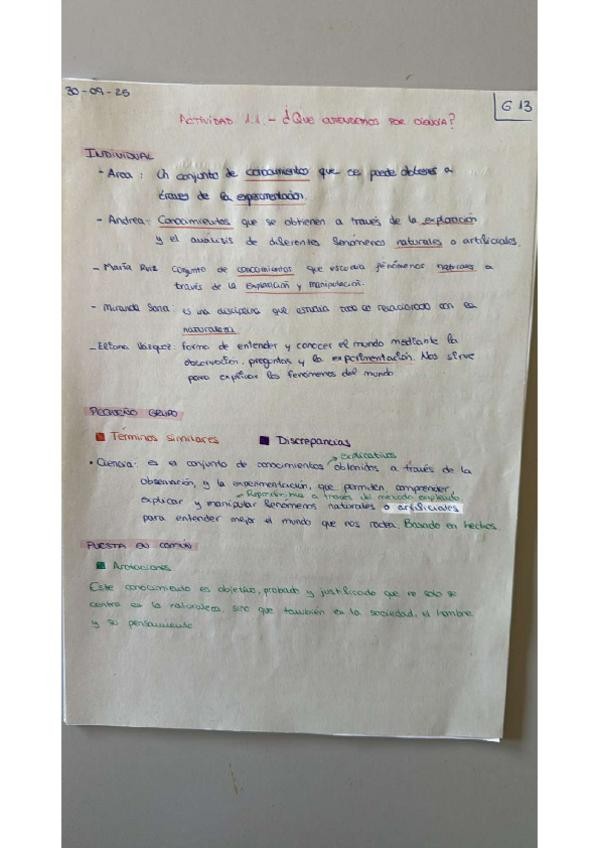 30-09-25
G 13
ACTIVIDAD 1.1. - ¿QUÉ ENTENDEMOS POR CIENCIA?
INDIVIDUAL
- Aroa: Un conjunto de conocimientos que se puede obtener a
través de la experimentación.
- Andrea: Conocimientos que se obtienen a través de la exploración
y el análisis de diferentes fenómenos naturales o artificiales.
- María Ruiz conjunto de conocimientos que estudia fenómenos naturales a
través de la exploración y manipulación.
- Miranda Soria: es una disciplina que estudia todo lo relacionado con la
naturaleza
- Eliana Vázquez: forma de entender y conocer el mundo mediante la
observación, preguntas y la experimentación. Nos sirve
para explicar los fenómenos del mundo
PEQUEÑO GRUPO
Términos similares Discrepancias
explicativos
• Ciencia: es el conjunto de conocimientos obtenidos a través de la
observación, y la experimentación, que permiten comprender,
a través del método empleado
explicar y manipular fenómenos naturales o artificiales
para entender mejor el mundo que nos rodea. Basado en hechos.
PUESTA EN COMÚN
Anotaciones
Este conocimiento es objetivo, probado y justificado que no solo se
centra en la naturaleza, sino que también en la sociedad, el hombre
y su pensamiento